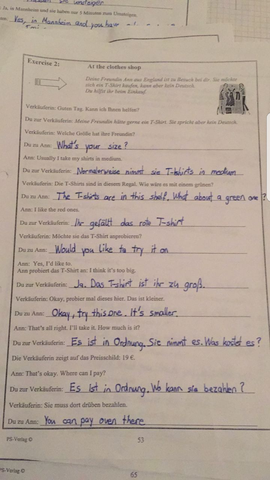 Ja, in Mannheim und sie haben nur 5 Minuten zum Umsteigen.
Yes, in Mannheim and you have
Exercise 2: At the clothes shop
Deine Freundin Ann aus England ist zu Besuch bei dir. Sie möchte
sich ein T-Shirt kaufen, kann aber kein Deutsch.
Du hilfst ihr beim Einkauf.
Verkäuferin: Guten Tag. Kann ich Ihnen helfen?
Du zur Verkäuferin: Meine Freundin hätte gerne ein T-Shirt. Sie spricht aber kein Deutsch.
Verkäuferin: Welche Größe hat Ihre Freundin?
Du zu Ann: What's your size?
Ann: Usually I take my shirts in medium.
Du zur Verkäuferin: Normalerweise nimmt sie T-shirts in medium
Verkäuferin: Die T-Shirts sind in diesem Regal. Wie wäre es mit einem grünen?
Du zu Ann: The T-shirts are in this shelf. What about a green one?
Ann: I like the red ones.
Du zur Verkäuferin: Ihr gefällt das rote T-shirt
Verkäuferin: Möchte sie das T-Shirt anprobieren?
Du zu Ann: Would you like to try it on
Ann: Yes, I'd like to.
Ann probiert das T-Shirt an: I think it's too big.
Du zur Verkäuferin: Ja. Das T-shirt ist ihr zu groß.
Verkäuferin: Okay, probier mal dieses hier. Das ist kleiner.
Du zu Ann: Okay, try this one. It's smaller.
Ann: That's all right. I'll take it. How much is it?
Du zur Verkäuferin: Es ist in Ordnung. Sie nimmt es. Was kostet es?
Die Verkäuferin zeigt auf das Preisschild: 19 €.
Ann: That's okay. Where can I pay?
Du zur Verkäuferin: Es ist in Ordnung. Wo kann sie bezahlen?
Verkäuferin: Sie muss dort drüben bezahlen.
Du zu Ann: You can pay over there
PS-Verlag © 53
PS-Verlag © 65